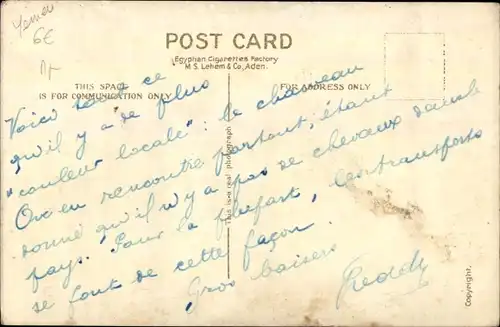 Yemen
6€
POST CARD
Egyphan Cigarettes Factory
M.S. Lehem & Co, Aden.
THIS SPACE
IS FOR COMMUNICATION ONLY
FOR ADDRESS ONLY
Voici tout ce
qu'il y a de plus
"couleur locale": le chameau
On en rencontre partout, étant
donné qu'il n'y a pas de chevaux dans le
pays. Pour la plupart, les transports
se font de cette façon.
Gros baisers
Freddy
This is a real photograph
Copyright.